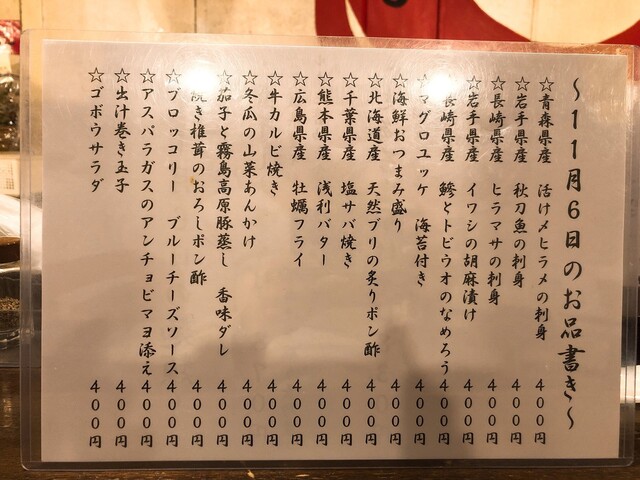 ～11月6日のお品書き～
☆青森県産 活け〆ヒラメの刺身 400円
☆岩手県産 秋刀魚の刺身 400円
☆長崎県産 ヒラマサの刺身 400円
☆岩手県産 イワシの胡麻漬け 400円
☆長崎県産 鯵とトビウオのなめろう 400円
☆マグロユッケ 海苔付き 400円
☆海鮮おつまみ盛り 400円
☆北海道産 天然ブリの炙りポン酢 400円
☆千葉県産 塩サバ焼き 400円
☆熊本県産 浅利バター 400円
☆広島県産 牡蠣フライ 400円
☆牛カルビ焼き 400円
☆冬瓜の山菜あんかけ 400円
☆茄子と霧島高原豚蒸し 香味ダレ 400円
☆焼き椎茸のおろしポン酢 400円
☆ブロッコリー ブルーチーズソース 400円
☆アスパラガスのアンチョビマヨ添え 400円
☆出汁巻き玉子 400円
☆ゴボウサラダ 400円